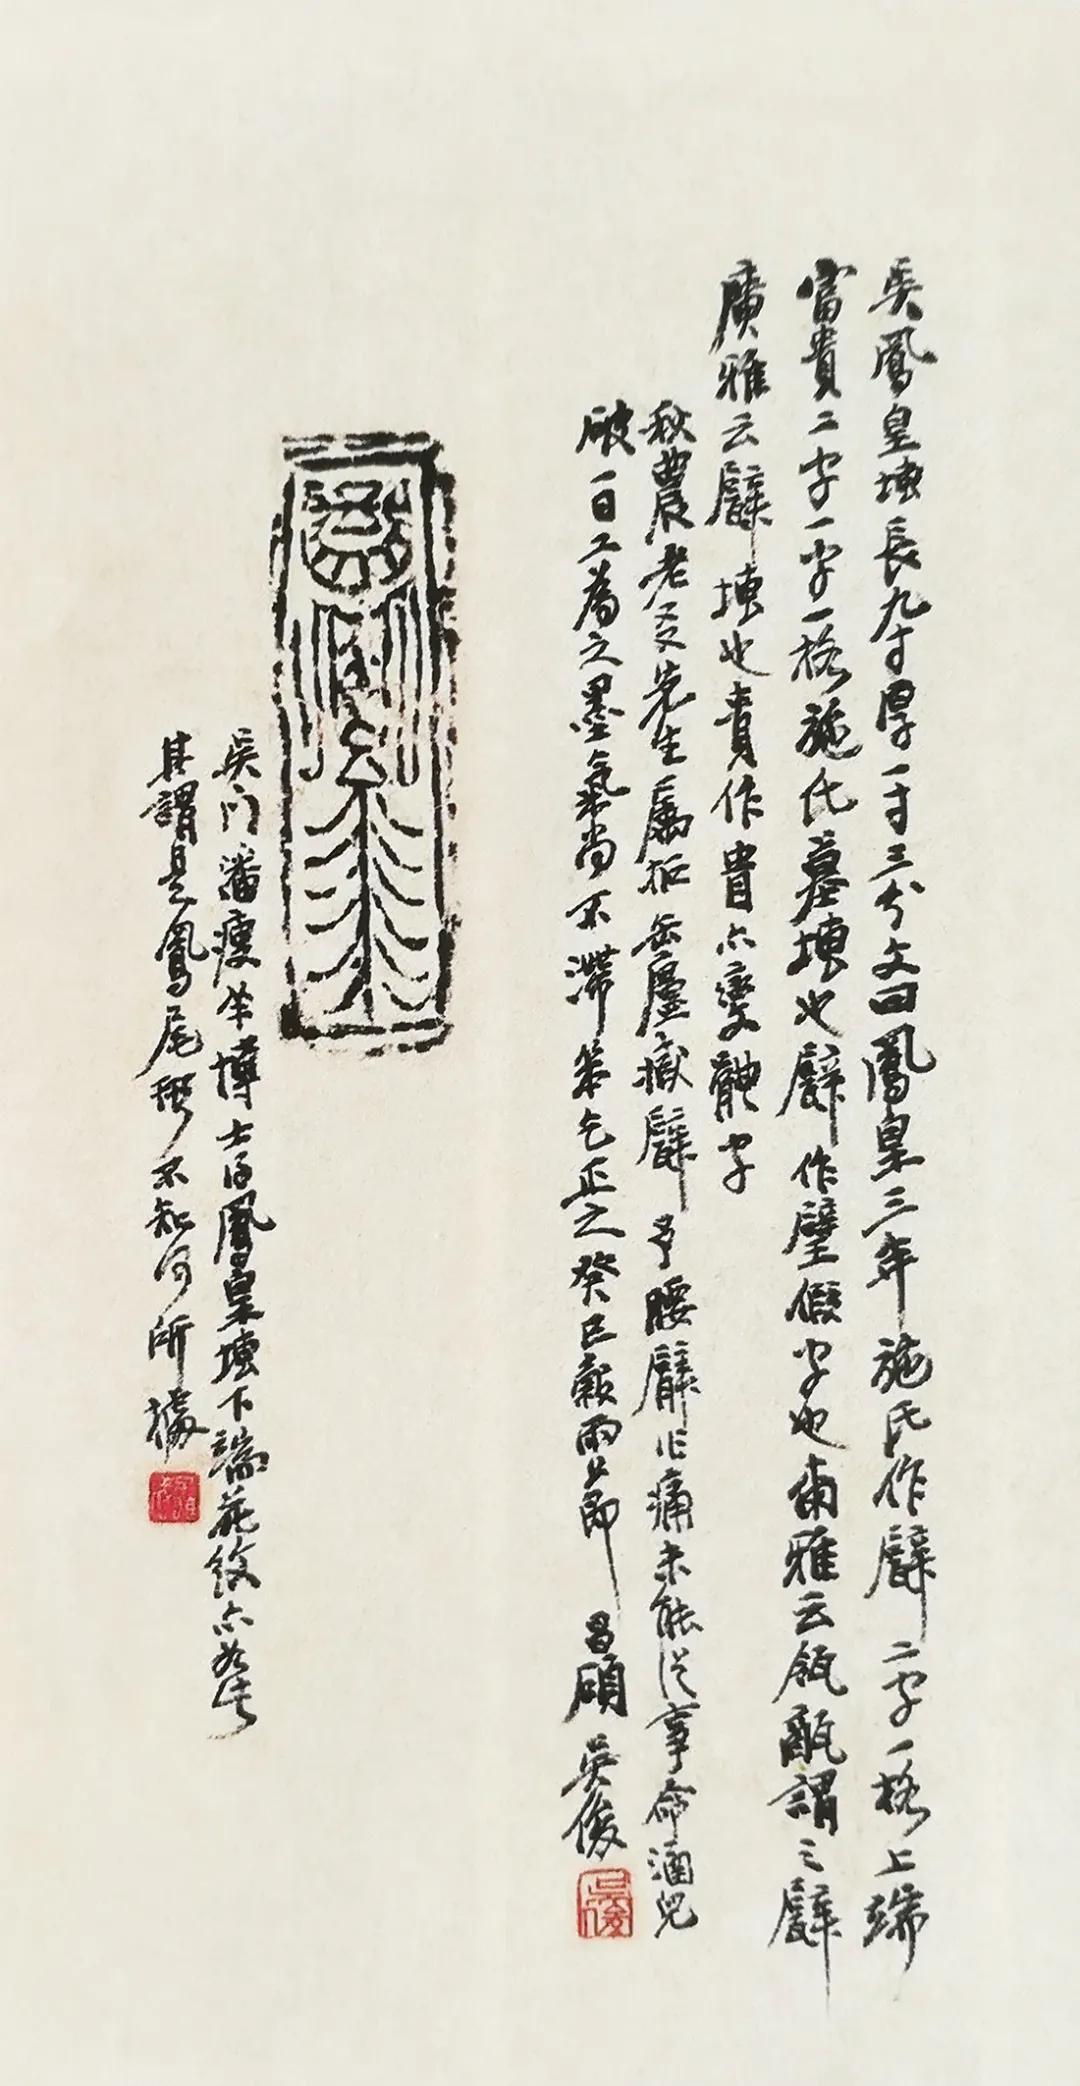 吳鳳皇塼長九寸厚一寸三分文曰鳳皇三年施氏作甓二字一格上端
富貴二字一字一格施氏墓塼也甓作壁假字也爾雅云瓴甋謂之甓
廣雅云甓塼也貴作貴亦變體字
秋農老友先生屬拓缶廬藏甓予腰臂作痛未能從事命涵兒
破一日工為之墨氣尚不滯笨乞正之癸巳穀雨節 昌碩吳俊
吳門潘瘦羊博士得鳳皇塼下端花紋亦如此
其謂是鳳尾形不知何所據